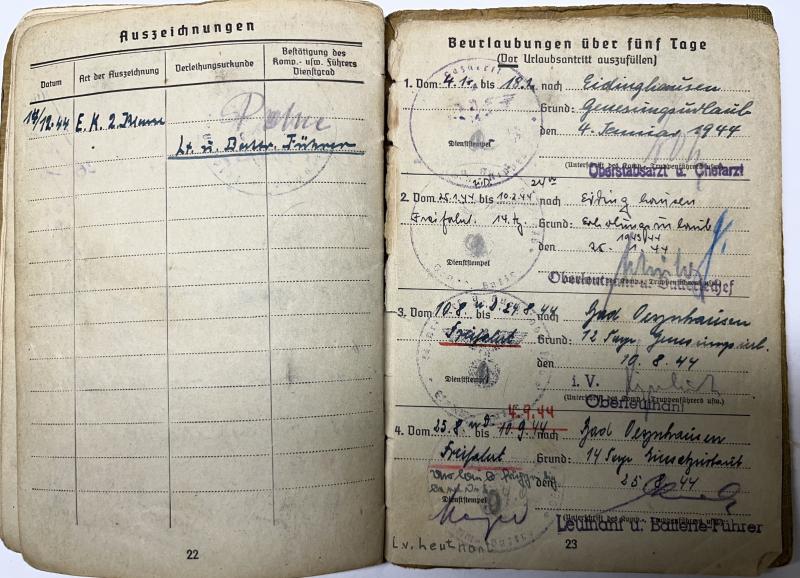 Auszeichnungen
Datum
Art der Auszeichnung
Verleihungsurkunde
Bestätigung des
Komp.- usw. Führers
Dienstgrad
19/12.44 E.K. 2. Klasse
Lt. u. Battr. Führer
22
Beurlaubungen über fünf Tage
(Vor Urlaubsantritt auszufüllen)
1. Vom: 4.1. bis 18.1. nach Eidinghausen
Grund: Genesungsurlaub
den 4. Januar 1944
Dienststempel
Oberstabsarzt u. Chefarzt
2. Vom 25.1.44 bis 10.2.44 nach Eidinghausen
Freifahrt. 14. Tg. Grund: Erholungsurlaub
1943/44
den 25. 1. 44
Dienststempel
3. Vom 10.8. bis 24.8.44 nach Bad Oeynhausen
Freifahrt Grund: 12 Tage Genesungsurl.
den 10.8.44
Dienststempel
i. V.
(Unterschrift des Komp.-, Truppenführers usw.)
Oberleutnant
4.9.44
4. Vom 25.8. bis 10.9.44 nach Bad Oeynhausen
Freifahrt Grund: 14 Tage Einsatzurlaub
den 25.8.44
Dienststempel
Leutnant u. Batterie-Führer
i.V. Leutnant
23